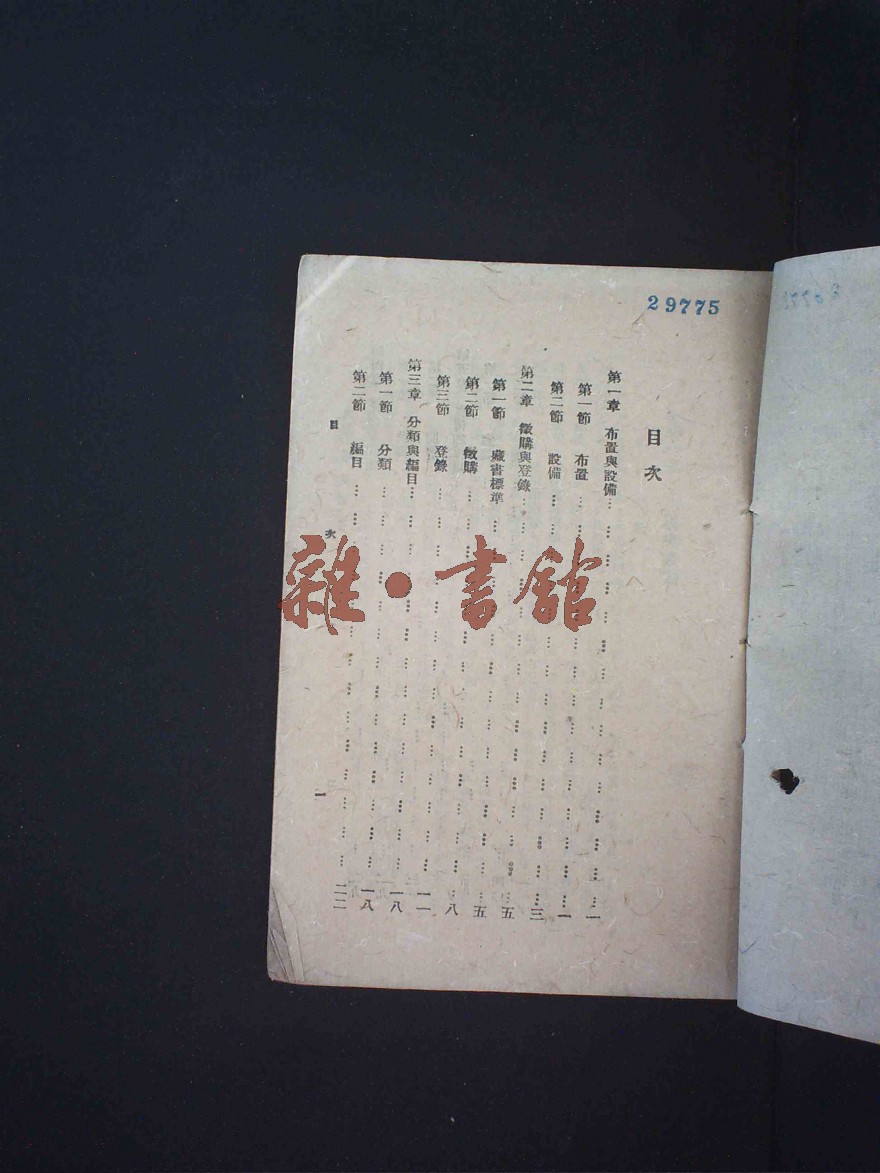 29775
目次
第一章 布置與設備………………………………………一
第一節 布置………………………………………一
第二節 設備………………………………………三
第二章 徵購與登錄………………………………………五
第一節 藏書標準………………………………………五
第二節 徵購………………………………………八
第三節 登錄………………………………………一一
第三章 分類與編目………………………………………一八
第一節 分類………………………………………一八
第二節 編目………………………………………二二
目 次 一
雜·書館